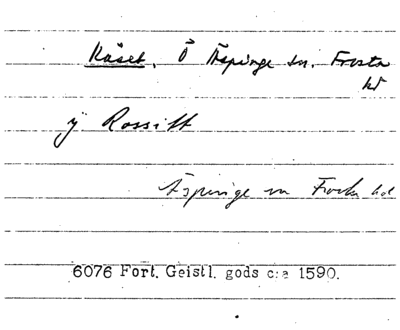 Råset. Ö Äspinge sn. Frosta
hd
ÿ Rossitt
Äspinge sn Frosta hd
6076 Fort. Geistl. gods c:a 1590.